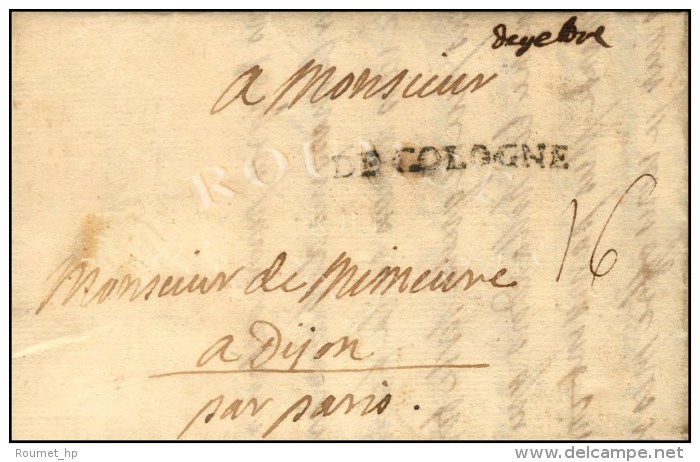 a Monsieur
DE COLOGNE
16
Monsieur de Mimeure
a Dijon
par paris.
ROUMET
Roumet_hp
delcampe.net